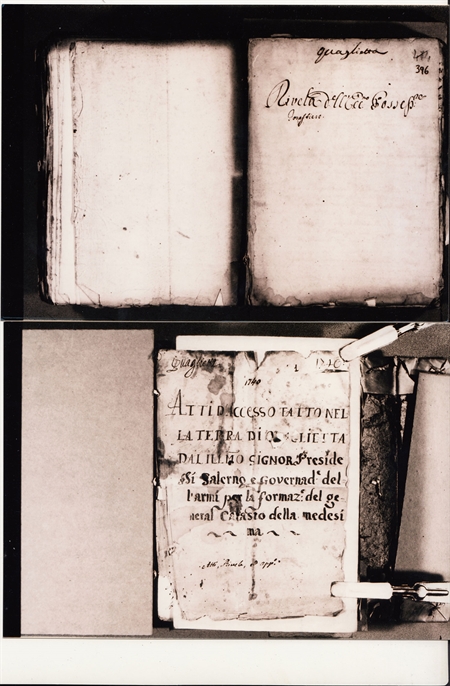 Quaglietta
396
Rivela dell'
forastiere
Quaglietta
1740
ATTI D'ACCESSO FATTO NEL
LA TERRA DI QUAGLIETTA
DALL'ILLMO SIGNOR Preside
di Salerno e Governad.e del
l'armi per la formaz.e del ge-
neral Catasto della medesi
ma